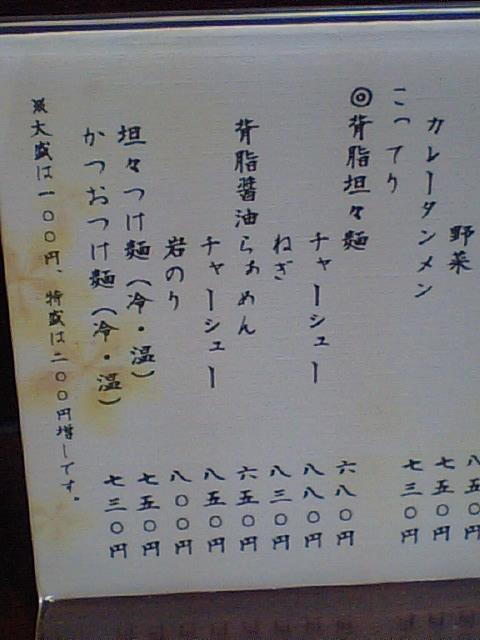 野菜 八五〇円
カレータンメン 七五〇円
こってり 七三〇円
◎背脂坦々麺 六八〇円
チャーシュー 八八〇円
ねぎ 八三〇円
背脂醤油らぁめん 六五〇円
チャーシュー 八五〇円
岩のり 八〇〇円
坦々つけ麺(冷・温) 七五〇円
かつおつけ麺(冷・温) 七三〇円
※大盛は一〇〇円、特盛は二〇〇円増しです。